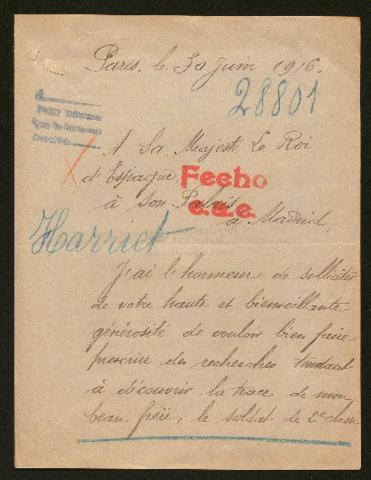 Paris, le 30 Juin 1916.
28801
A Sa Majesté Le Roi
d'Espagne
Fecho
à son Palais
e.a.e.
à Madrid,
Harriet
J'ai l'honneur de solliciter
de votre haute et bienveillante
générosité de vouloir bien faire
prescrire des recherches tendant
à découvrir la trace de mon
beau frère, le soldat de 2e classe